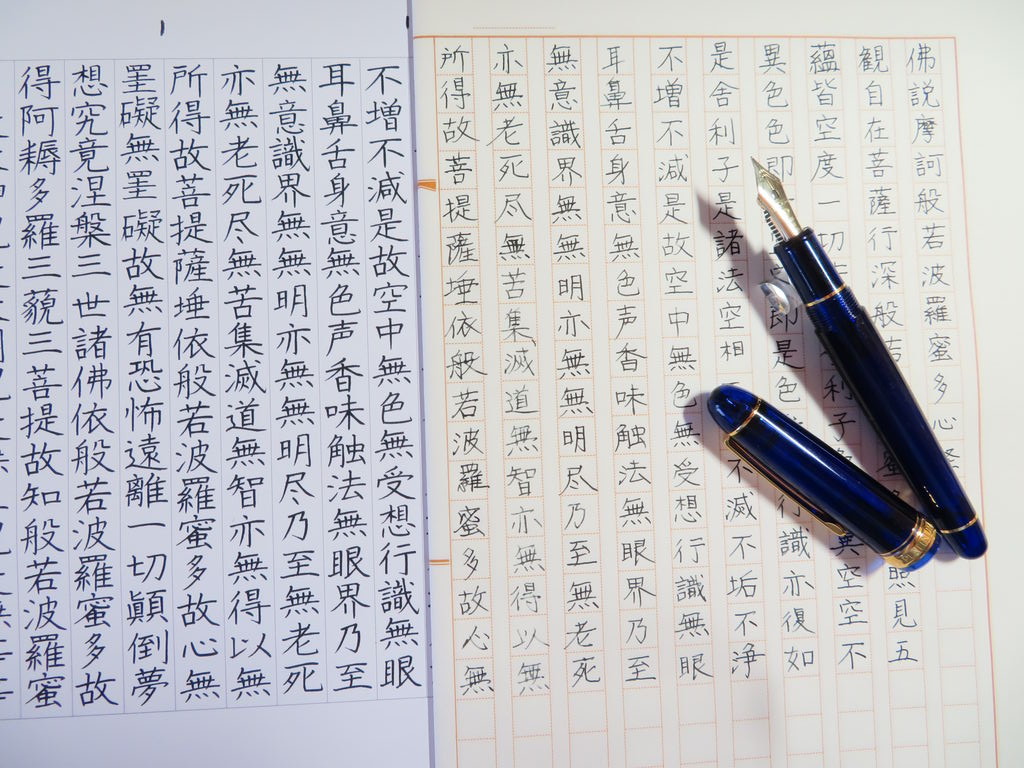 佛説摩訶般若波羅蜜多心経
観自在菩薩行深般若蜜照見五
蘊皆空度一切利子異空空不
異色色即空即是色行識亦復如
是舎利子是諸法空相不滅不垢不浄
不増不減是故空中無色無受想行識無眼
耳鼻舌身意無色声香味触法無眼界乃至
無意識界無無明亦無無明尽乃至無老死
亦無老死尽無苦集滅道無智亦無得以無
所得故菩提薩埵依般若波羅蜜多故心無
不増不減是故空中無色無受想行識無眼
耳鼻舌身意無色声香味触法無眼界乃至
無意識界無無明亦無無明尽乃至無老死
亦無老死尽無苦集滅道無智亦無得以無
所得故菩提薩埵依般若波羅蜜多故心無
罣礙無罣礙故無有恐怖遠離一切顛倒夢
想究竟涅槃三世諸佛依般若波羅蜜多故
得阿耨多羅三藐三菩提故知般若波羅蜜